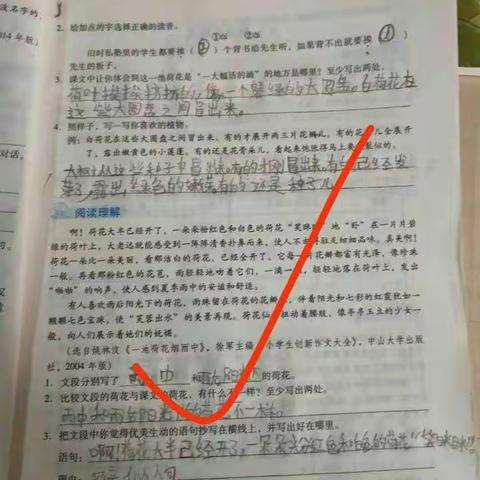 没名字的,
2. 给加点的字选择正确的读音。
①āi ②ái
旧时私塾里的学生都要挨(②)个背书给先生听,如果背不出就要挨(①)
先生的板子。
3. 课文中让你体会到这一池荷花是“一大幅活的画”的地方是哪里?至少写出两处。
荷叶挨挨挤挤的,像一个碧绿的大圆盘。白荷花在
这些大圆盘之间冒出来。
4. 照样子,写一写你喜欢的植物。
例:白荷花在这些大圆盘之间冒出来。有的才展开两三片花瓣儿。有的花瓣儿全展开
了,露出嫩黄色的小莲蓬。有的还是花骨朵儿,看起来饱胀得马上要破裂似的。
从这些种子中冒出来
露出绿色的 有的还是种子儿
阅读理解
啊!荷花大半已经开了,一朵朵粉红色和白色的荷花“笑眯眯”地“卧”在一片片碧
绿的荷叶上,大老远就能感受到一阵阵清香扑鼻而来,使人不由得驻足细细品味。真美啊!
荷花一朵比一朵美丽,看那洁白的荷花,已经全开了,它每一片花瓣都富有光泽,像珍珠
一般。再看那粉红色的花苞,雨轻轻地吻着它们,一滴一滴,轻轻地落在荷叶上,发出
“啪啪”的响声,使人感到夏季雨中的安谧和舒适。
有人喜欢雨后阳光下的荷花,雨珠留在荷花的花瓣上,伴着阳光和七彩的虹霓犹如一
颗颗七色宝珠,使“芙蓉出水”的美景再现。荷花仙子扭动着腰肢,像亭亭玉立的少女一
般,向人们展示着她们的妩媚。
(选自姚林汶《一池荷花烟雨中》,徐军主编《小学生创新作文大全》,中山大学出版
社,2004年版)
1. 文段分别写了 雨中 和雨后阳光下的荷花。
2. 比较文段的荷花与课文的荷花,有什么不一样?至少写出两处。
雨中和雨后阳光 不一样。
3. 把文段中你觉得优美生动的语句抄写在横线上,并写出好在哪里。
语句:啊!荷花大半已经开了,一朵朵粉红色和白色的荷花“笑眯眯”
理由:
014年版)
对话,